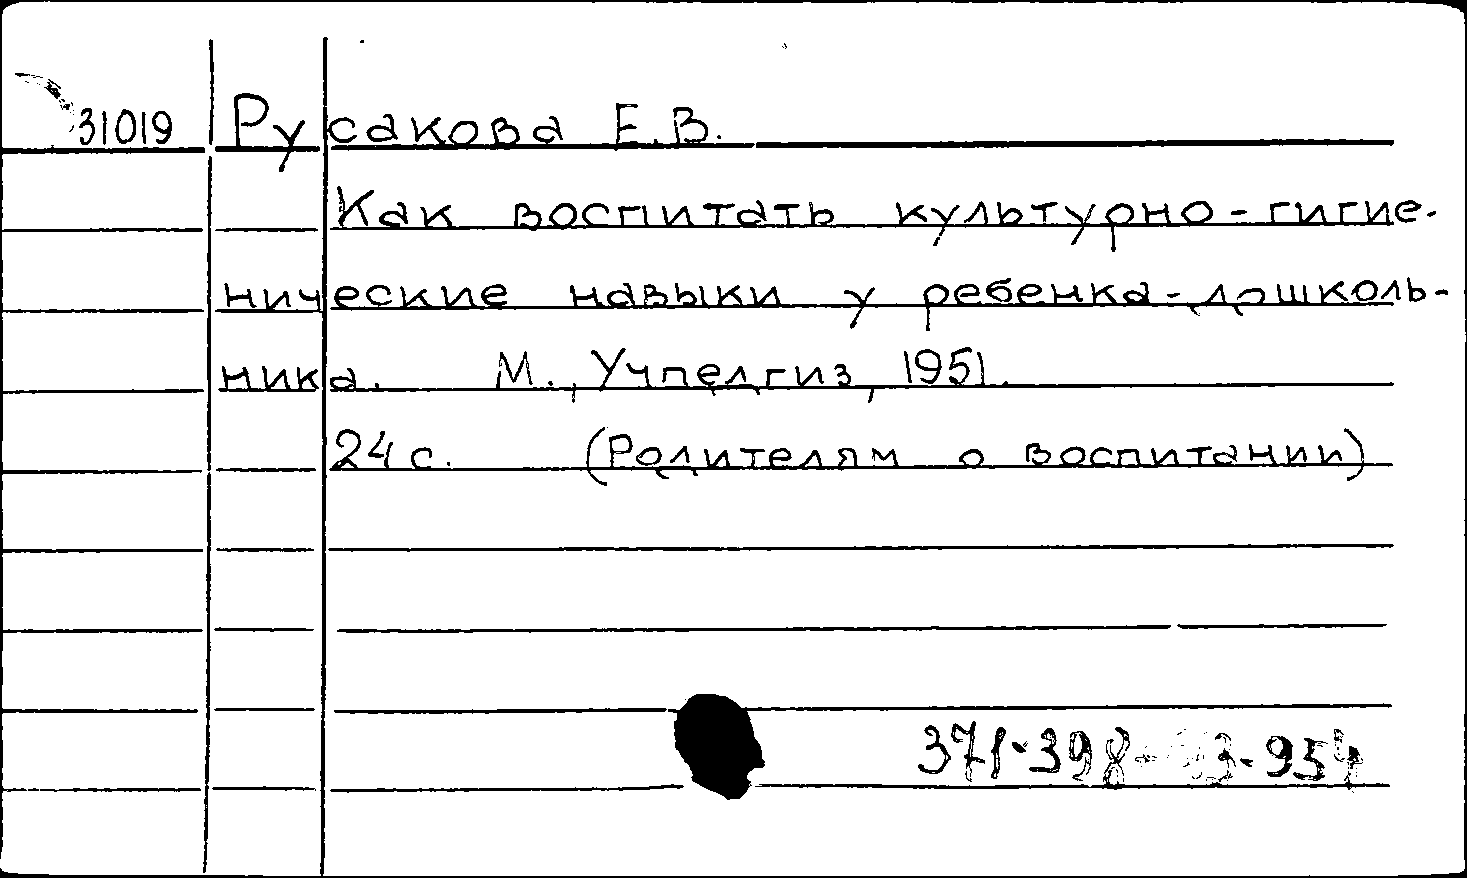 31019 Русакова Е.В.
Как воспитать культурно-гигие-
нические навыки у ребенка-дошколь-
ника. М., Учпедгиз, 1951.
24 с. (Родителям о воспитании)